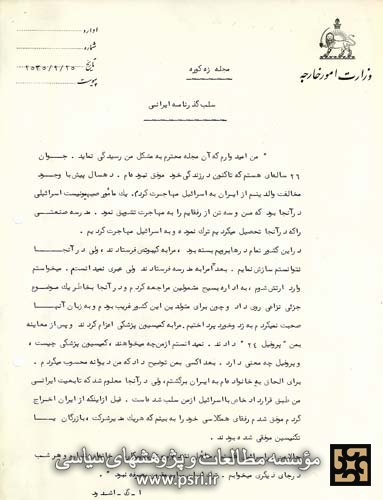 وزارت امور خارجه
اداره
شماره
تاریخ ۲۵۳۵/۹/۲۵
پیوست
مجله زه کوره
سلب گذرنامه ایرانی
" من امیدوارم که آن مجله محترم به مشکل من رسیدگی نماید. جوان
۲۶ ساله‌ای هستم که تاکنون در زندگی خود موفق نبوده‌ام. ده سال پیش با وجود
مخالفت والدینم از ایران به اسرائیل مهاجرت کردم. یک مأمور صیهونیست اسرائیلی
در آنجا بود که من و سه تن از رفقایم را به مهاجرت تشویق نمود. مدرسه صنعتی
را که در آنجا تحصیل میکردیم ترک نموده و به اسرائیل مهاجرت کردیم.
در این کشور تمام درها برویم بسته بود. مرا به کیبوتص فرستادند، ولی در آنجا
نتوانستم سازش نمایم. بعداً مرا به مدرسه‌ای فرستادند ولی عبری نمیدانستم. میخواستم
وارد ارتش شوم. به اداره بسیج مشمولین مراجعه کردم و در آنجا بخاطر یک موضوع
جزئی نزاعی روی داد و چون برای متولدین این کشور غریب بودم و به زبان آنها
صحبت نمیکردم به زد و خورد پرداختیم. مرا به کمیسیون پزشکی اعزام کردند و پس از معاینه
بمن "پروفیل ۲۴" دادند. نمیدانستم از من چه میخواهند، کمیسیون پزشکی چیست،
و پروفیل چه معنی دارد. بعداً کسی بمن توضیح داد که من دیوانه محسوب میگردم.
برای الحاق به خانواده‌ام به ایران برگشتم، ولی در آنجا معلوم شد که تابعیت ایرانی
من طبق قرارداد خاص با اسرائیل از من سلب شده است. قبل از اینکه از ایران اخراج
گردم موفق شدم رفقای همکلاسی خود را ببینم که هر یک مدیر شرکت، بازرگان یا
تکنیسین موفقی شده بودند.
مؤسسه مطالعات و پژوهشهای سیاسی
www.psri.ir